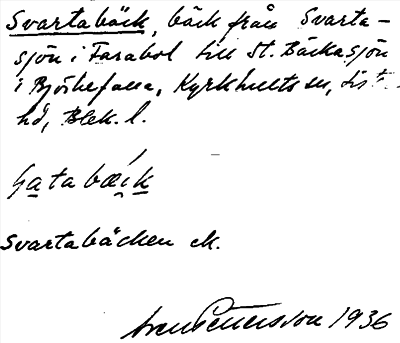 Svartabäck, bäck från Svarta-
sjön i Farabol till St. Bäckasjön
i Björkefalla, Kyrkhults sn, List.
hd, Blek. l.
batabæik
Svartabäcken ek.
Sven Pettersson 1936